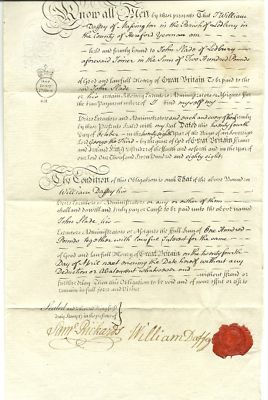 Know all Men by these presents That I William
Daffy of in the Parish of Ledbury
in the County of Hereford Yeoman am
held and firmly bound to John Slade of Ledbury
aforesaid in the Sum of Two Hundred Pounds
of Good and lawfull Money of Great Britain to be paid to the
said John Slade
his certain Attorney Executors Administrators or Assigns For
the true Payment whereof I bind myself my
Heirs Executors and Administrators and each and every of them firmly
by these Presents Sealed with my Seal Dated the
Day of October in the Year of the Reign of our Sovereign
Lord George the Third by the Grace of God of Great Britain France
and Ireland King Defender of the Faith and so forth and in the Year of
our Lord One thousand Seven hundred and eighty eight
The Condition of this Obligation is such That if the above bounden
William Daffy his
Heirs Executors or Administrators or any or either of them
shall and do well and truly pay or Cause to be paid unto the above named
John Slade his
Executors Administrators or Assigns the full Sum of One Hundred
Pounds together with lawful Interest for the same
of Good and lawfull Money of Great Britain on the
Day of April next ensuing the Date hereof without any
Deduction or Abatement whatsoever and without fraud or
further Delay Then this Obligation to be void and of none effect or else to
remain in full force and Virtue
Sealed and
in the presence of
Saml. Richards William Daffy